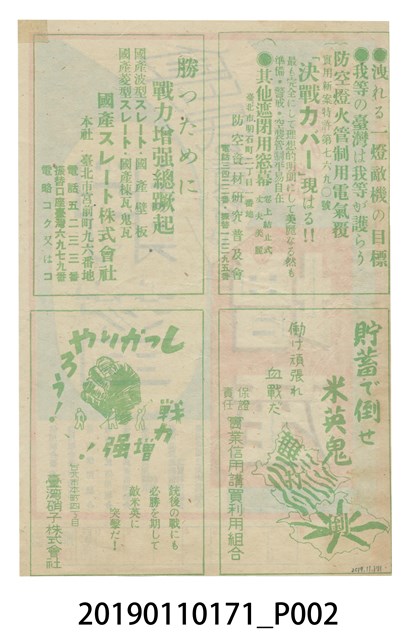 ●洩れる一燈敵機の目標
●我等の臺灣は我等が護らう
防空燈火管制用電氣覆
實用新案特許第七六九〇號
「決戰カバー」現はる!!
●其他遮閉用窓幕
臺北市明石町二丁目一番地
防空資材研究普及會
勝つために
戰力增強總蹶起
國產波型スレート・國產壁板
國產菱型スレート・國產棟瓦鬼瓦
國產スレート株式會社
本社 臺北市宮前町九六番地
電話五二三三番
振替口座臺灣六九七九番
電略コクヌ又はコ
貯蓄で倒せ
米英鬼
働け頑張れ
血戰だ
保證
責任
實業信用購買利用組合
しっかりやろう!
戰力增強!
銃後の戰にも
必勝を期して
敵米英に
突擊だ!
臺灣硝子株式會社
20190110171_P002